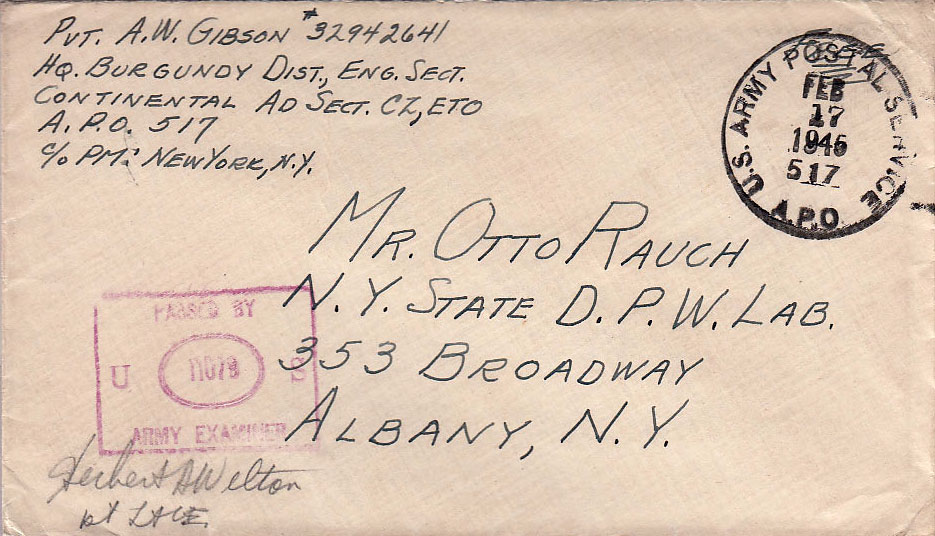 Pvt. A.W. Gibson #32942641
Hq. Burgundy Dist., Eng. Sect.
Continental Ad Sect. CZ, ETO
A.P.O. 517
c/o PM: New York, N.Y.
Free
U.S. ARMY POSTAL SERVICE
FEB
17
1945
517
A.P.O.
Mr. Otto Rauch
N.Y. State D.P.W. Lab.
353 Broadway
Albany, N.Y.
PASSED BY
U S
ARMY EXAMINER
Herbert A Welton